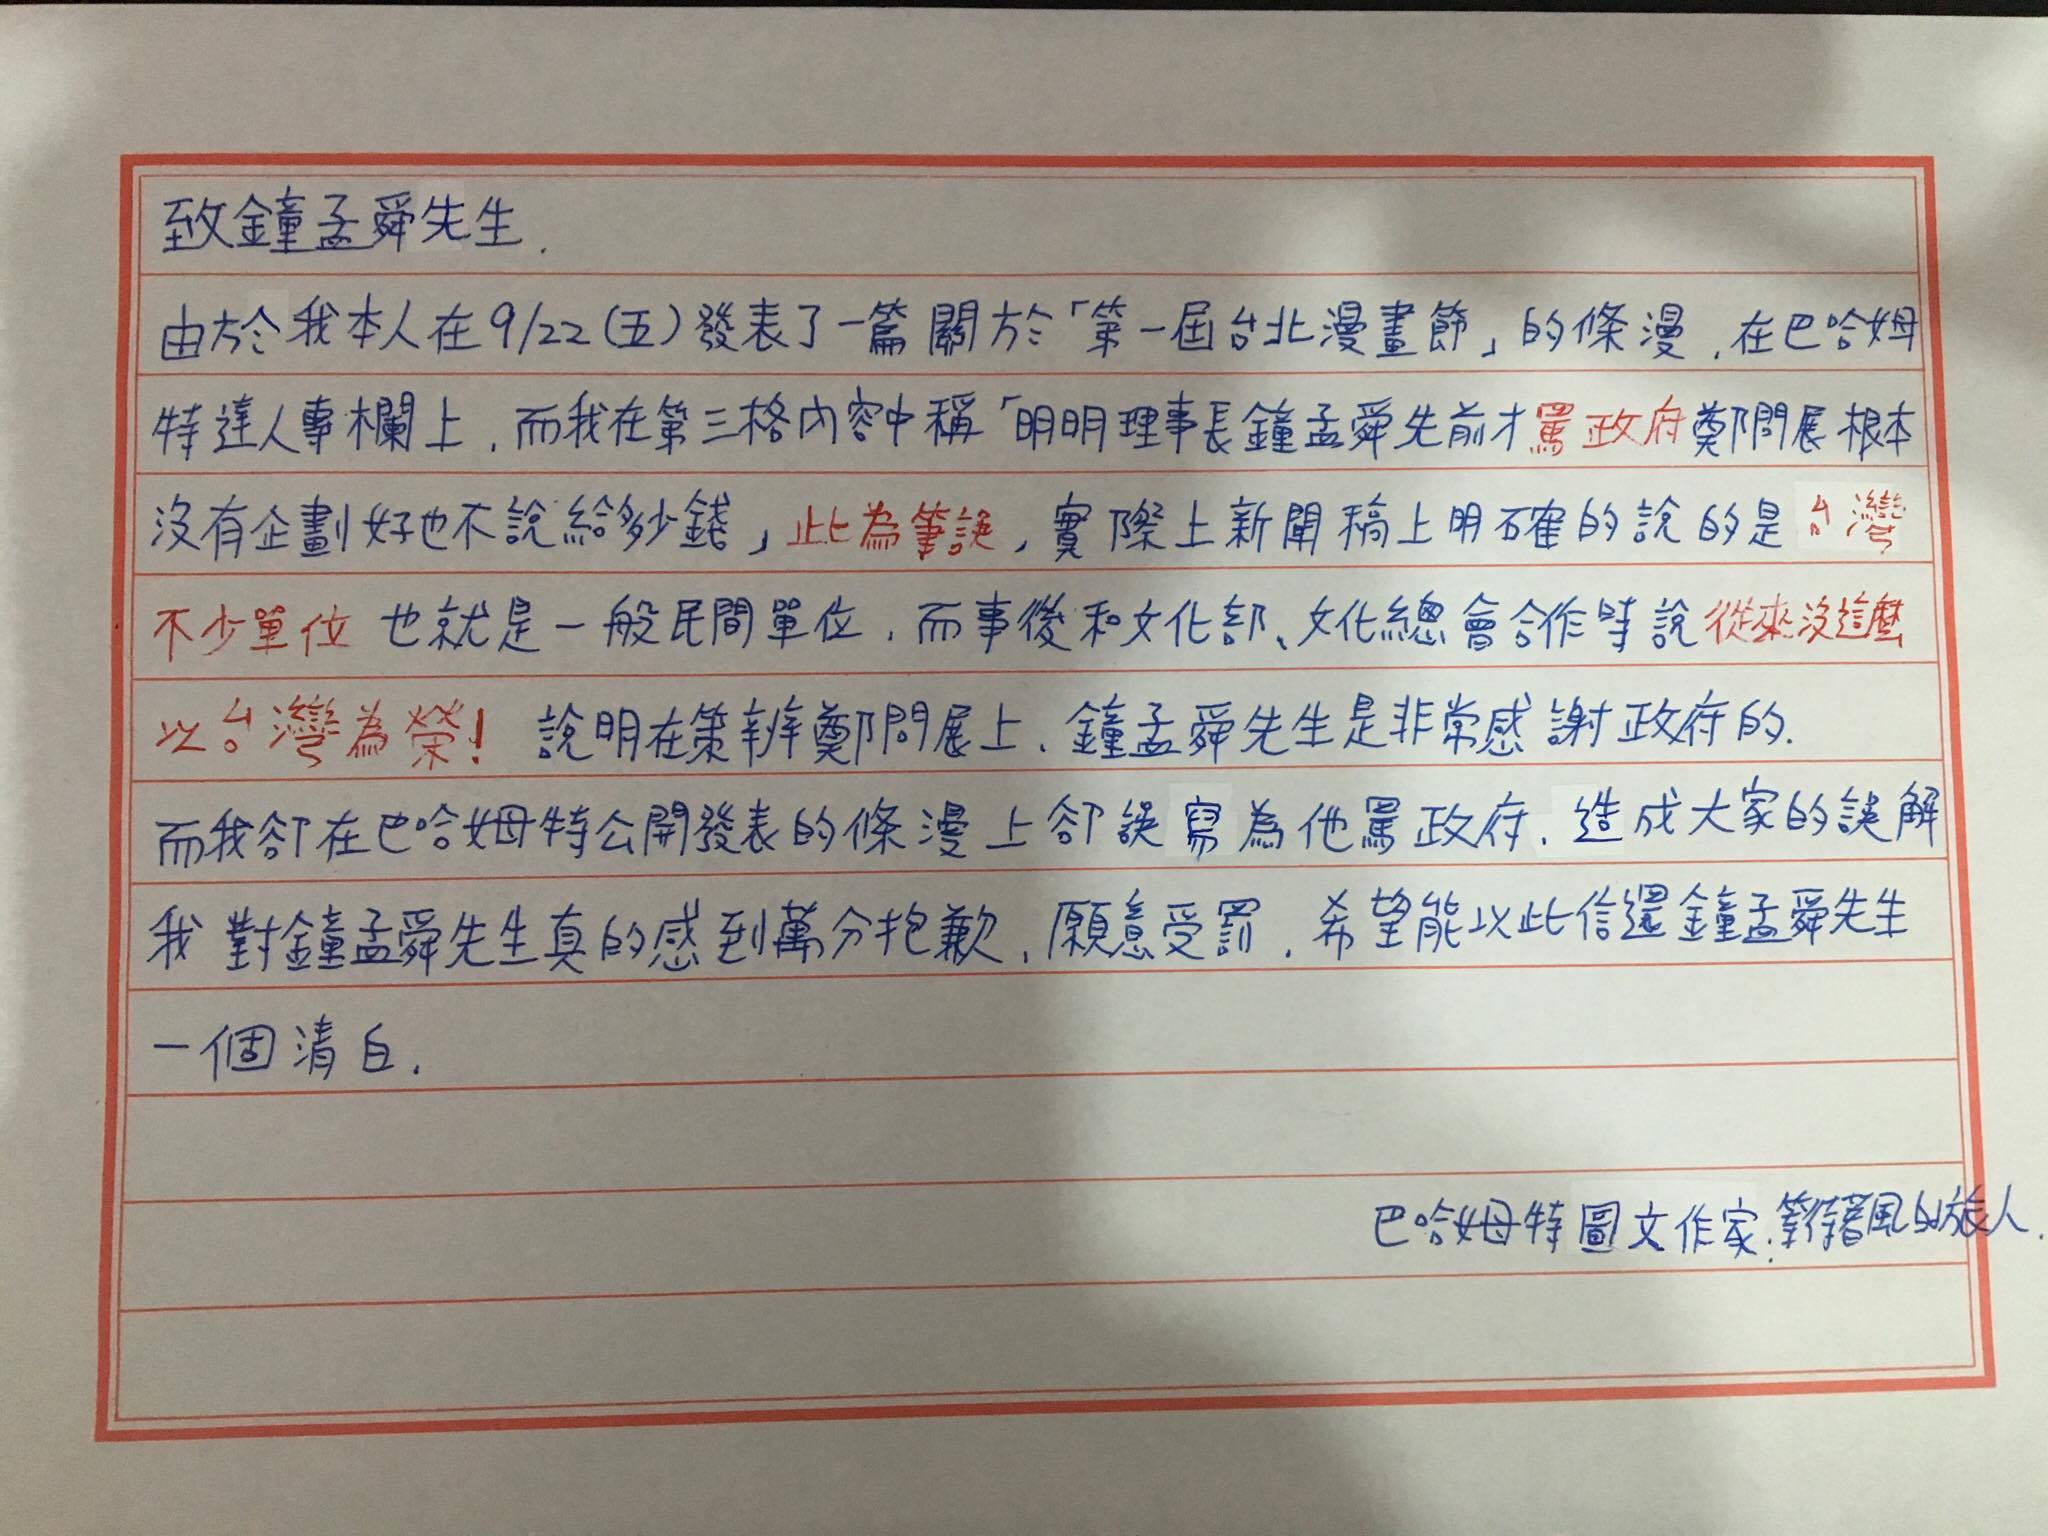 致鐘孟舜先生.
由於我本人在9/22(五)發表了一篇關於「第一屆台北漫畫節」的條漫,在巴哈姆
特達人專欄上,而我在第三格內容中稱「明明理事長鐘孟舜先前才罵政府鄭問展根本
沒有企劃好也不說給多少錢」此為筆誤,實際上新聞稿上明確的說的是台灣
不少單位也就是一般民間單位,而事後和文化部、文化總會合作時說從來沒這麼
以台灣為榮!說明在策辦鄭問展上,鐘孟舜先生是非常感謝政府的.
而我卻在巴哈姆特公開發表的條漫上卻誤寫為他罵政府,造成大家的誤解
我對鐘孟舜先生真的感到萬分抱歉,願意受罰,希望能以此信還鐘孟舜先生
一個清白.
巴哈姆特圖文作家:等待著風的旅人.